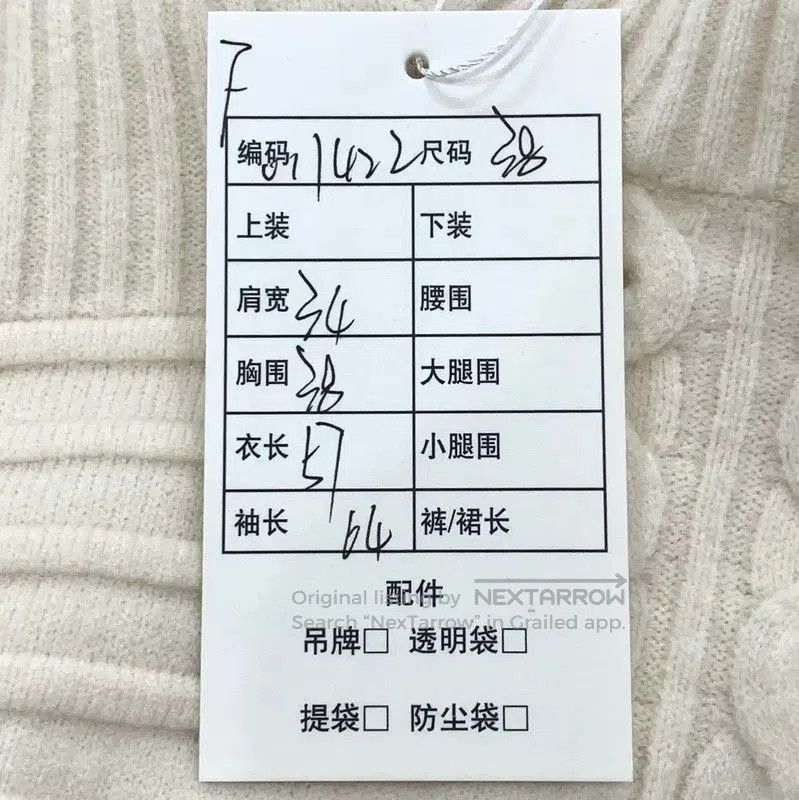 F
编码 071422 尺码 38
上装 下装
肩宽 34 腰围
胸围 38 大腿围
衣长 57 小腿围
袖长 64 裤/裙长
配件
Original listing by NEXTARROW
Search “NexTarrow” in Grailed app.
吊牌□ 透明袋□
提袋□ 防尘袋□